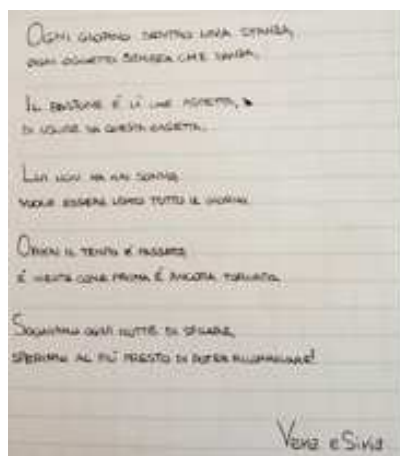 OGNI GIORNO DENTRO UNA STANZA,
OGNI OGGETTO SEMBRA CHE DANZA.
IL BASTONE È LÌ CHE ASPETTA,
DI USCIRE DA QUESTA CASETTA.
LUI NON HA MAI SONNO,
VUOLE ESSERE USATO TUTTO IL GIORNO.
ORMAI IL TEMPO È PASSATO,
E NIENTE COME PRIMA È ANCORA TORNATO.
SOGNIAMO OGNI NOTTE DI
SPERIAMO AL PIÙ PRESTO DI POTER
e